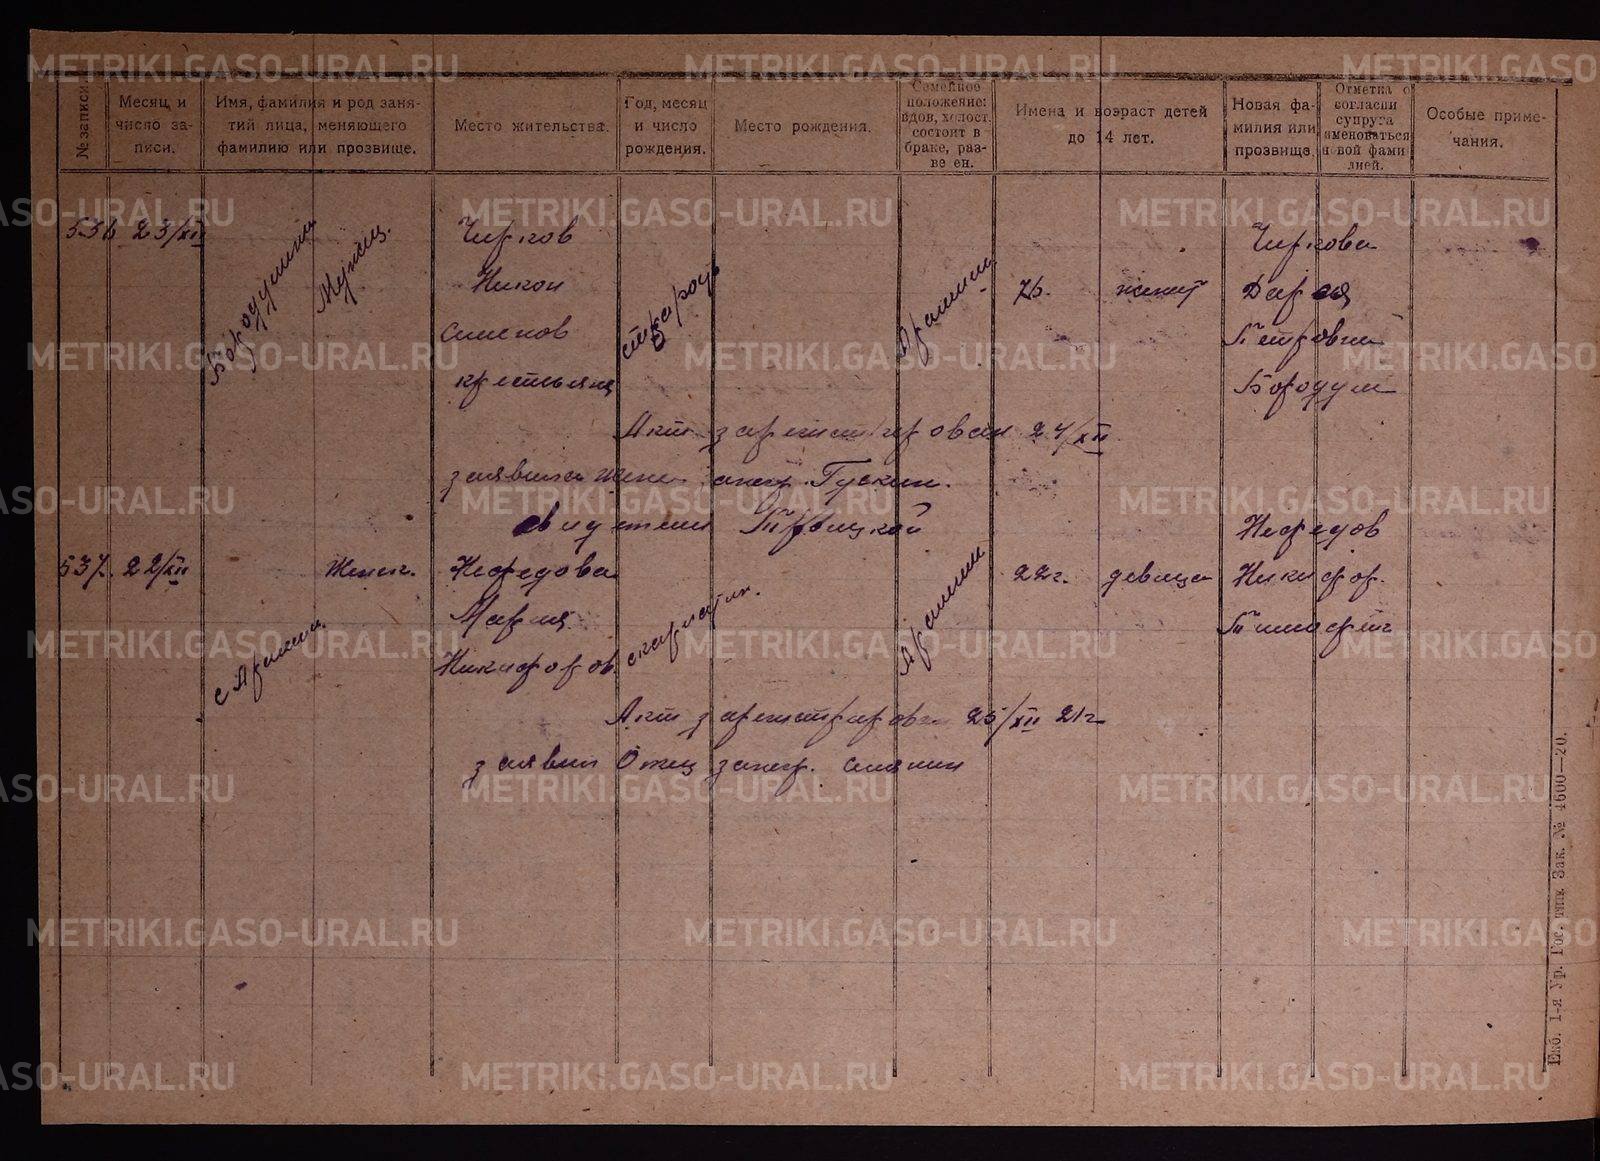 № записи
Месяц и число записи.
Имя, фамилия и род занятий лица, меняющего фамилию или прозвище.
Место жительства.
Год, месяц и число рождения.
Место рождения.
Семейное положение: вдов, холост, состоит в браке, разведен.
Имена и возраст детей до 14 лет.
Новая фамилия или прозвище
Отметка о согласии супруга именоваться новой фамилией.
Особые примечания.
536 23/XII
Бородулина
Мужск.
Чирков
Никон
крестьянин
старость
Арамиль
76. женат
Чиркова
Дарья
Петровна
Бородул
Акт зарегистрирован 24/XII
заявила жена
Свидетели Троицкой
537. 22/XII
с Арамил.
Женск.
Нефедова
Мария
Никифоров.
скарлатин.
Арамил
22г. девица
Нефедов
Никифор.
Тимофееч
Акт зарегистриров 25/XII 21г
заявил Отец
Екб. 1-я Ур. Гос. тип. Зак. № 4600—20.
METRIKI.GASO-URAL.RU